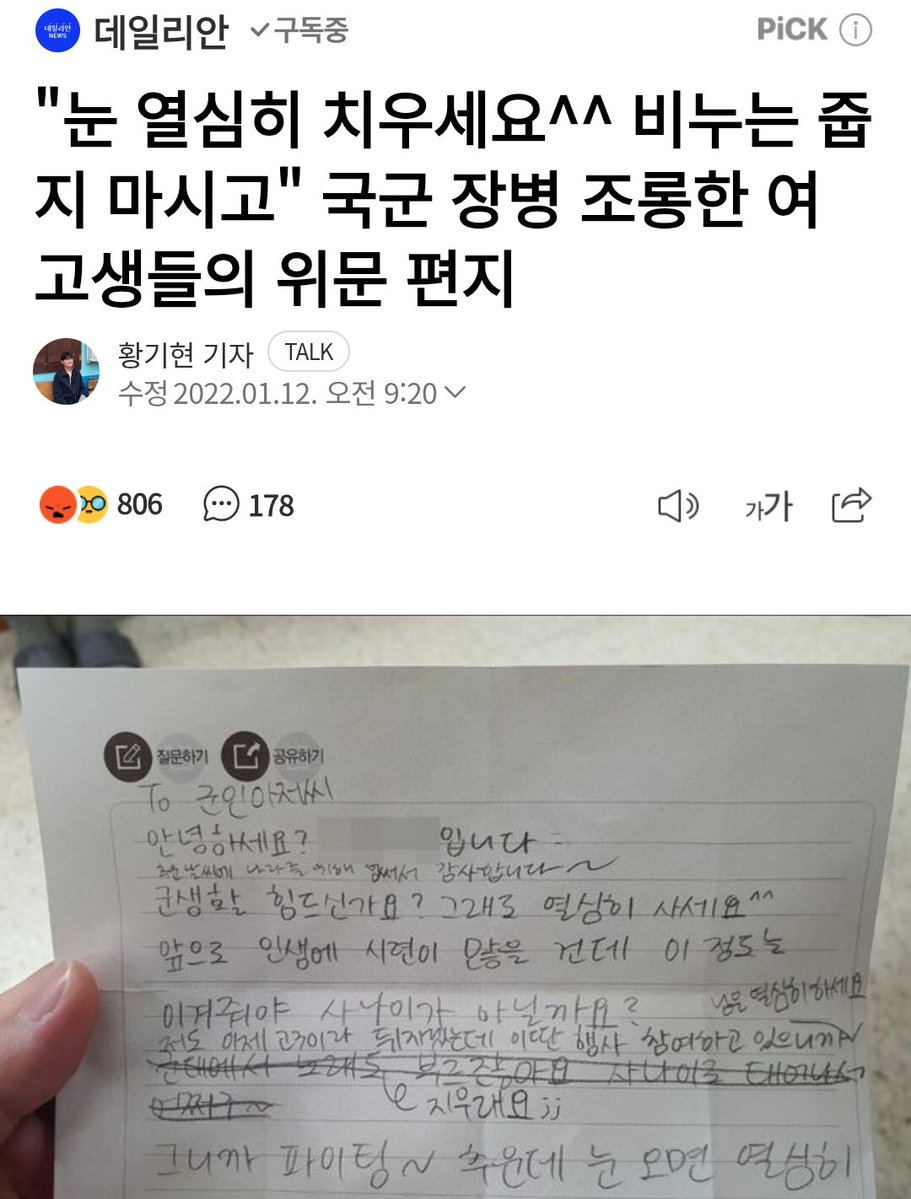 데일리안
NEWS
데일리안 구독중
PiCK
"눈 열심히 치우세요^^ 비누는 줍
지 마시고" 국군 장병 조롱한 여
고생들의 위문 편지
황기현 기자 TALK
수정 2022.01.12. 오전 9:20
806 178
가가
질문하기 공유하기
To 군인아저씨
안녕하세요? 입니다
추운 날씨에 나라를 위해 힘써서 감사합니다~
군생활 힘드신가요? 그래도 열심히 사세요^^
앞으로 인생에 시련이 많을 건데 이 정도는
이겨줘야 사나이가 아닐까요?
저도 이제 고3이라 뒤지겠는데 이딴 행사 참여하고 있으니까
님은 열심히 하세요
군대에서 노래도 부르잖아요 사나이로 태어나서
어쩌구~
지우래요;;
그니까 파이팅~ 추운데 눈 오면 열심히